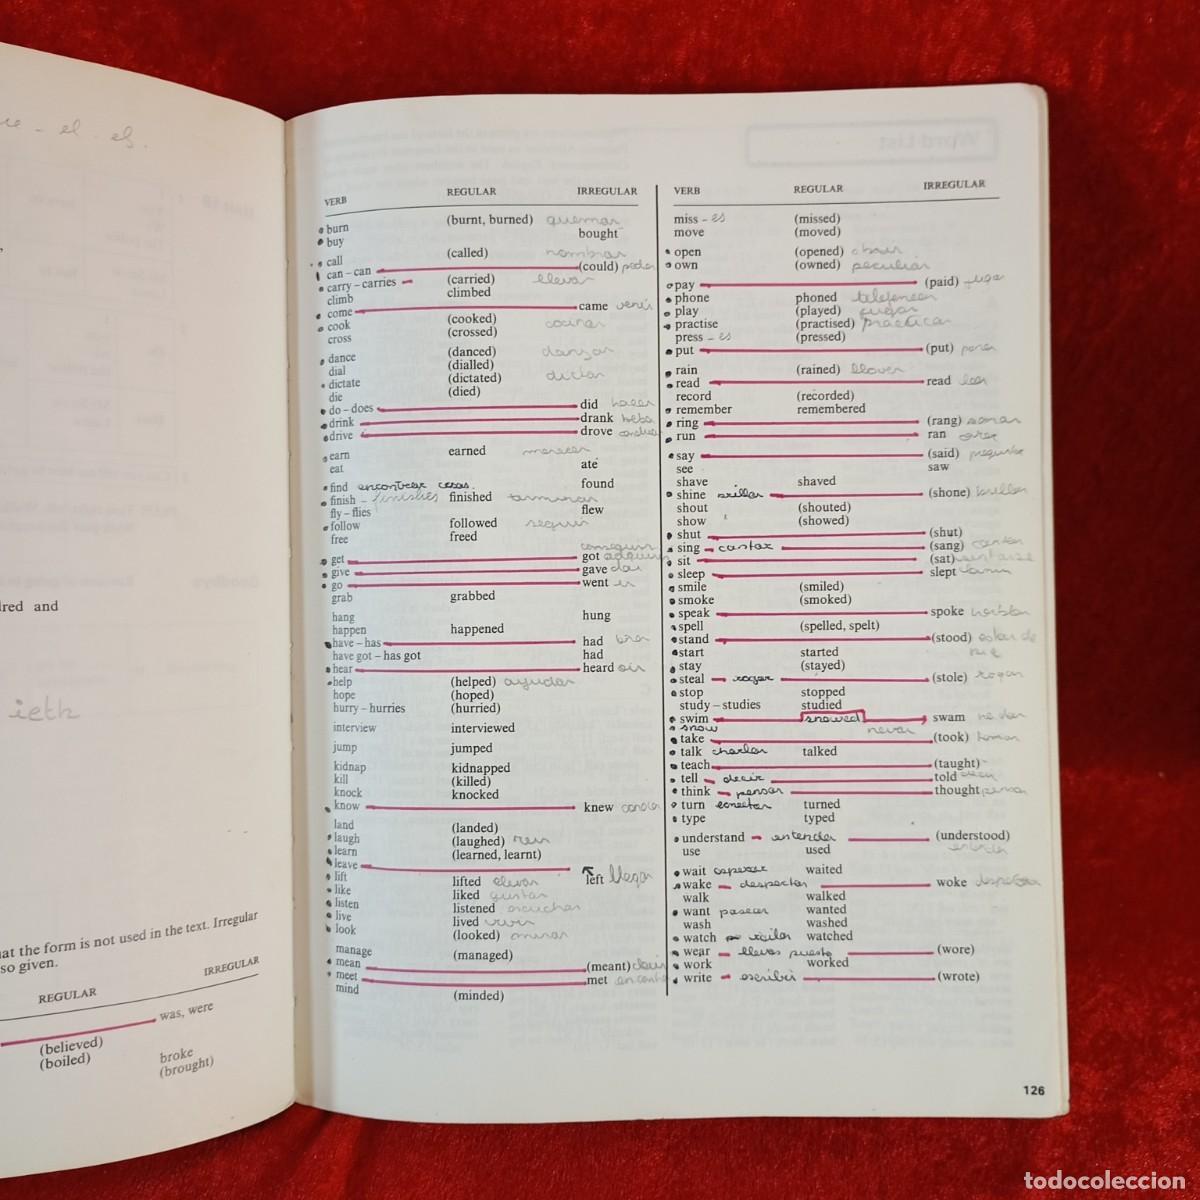 - el - els.
dred and
ieth
at the form is not used in the text. Irregular
so given.
REGULAR IRREGULAR
was, were
(believed)
(boiled) broke
(brought)
VERB REGULAR IRREGULAR
burn (burnt, burned) quemar
buy bought
call (called) nombrar
can – can (could) poder
carry – carries (carried) llevar
climb climbed
come came venir
cook (cooked) cocinar
cross (crossed)
dance (danced) danzar
dial (dialled)
dictate (dictated) dictar
die (died)
do – does did hacer
drink drank beber
drive drove conducir
earn earned merecer
eat ate
find encontrar cosas. found
finish – finishes finished terminar
fly – flies flew
follow followed seguir
free freed
conseguir
get got adquirir
give gave dar
go went ir
grab grabbed
hang hung
happen happened
have – has had
have got – has got had
hear heard oir
help (helped) ayudar
hope (hoped)
hurry – hurries (hurried)
interview interviewed
jump jumped
kidnap kidnapped
kill (killed)
knock knocked
know knew conocer
land (landed)
laugh (laughed) reir
learn (learned, learnt)
leave left llegar
lift lifted elevar
like liked gustar
listen listened escuchar
live lived vivir
look (looked) mirar
manage (managed)
mean (meant) decir
meet met encontrar
mind (minded)
VERB REGULAR IRREGULAR
miss – es (missed)
move (moved)
open (opened) abrir
own (owned) peculiar
pay (paid)
phone phoned telefonear
play (played) jugar
practise (practised) practicar
press – es (pressed)
put (put) poner
rain (rained) llover
read read leer
record (recorded)
remember remembered
ring (rang) sonar
run ran
say (said)
see saw
shave shaved
shine brillar (shone) brillar
shout (shouted)
show (showed)
shut (shut)
sing cantar (sang) cantar
sit (sat) sentarse
sleep slept
smile (smiled)
smoke (smoked)
speak spoke hablar
spell (spelled, spelt)
stand (stood) estar de
start started pie
stay (stayed)
steal rogar (stole) rogar
stop stopped
study – studies studied
swim snowed swam
snow nevar
take (took) tomar
talk charlar talked
teach (taught)
tell decir told decir
think pensar thought pensar
turn conectar turned
type typed
understand entender (understood)
use used entender
wait esperar waited
wake despertar woke despertar
walk walked
want pasear wanted
wash washed
watch watched
wear llevar puesto (wore)
work worked
write escribir (wrote)
126
todocoleccion